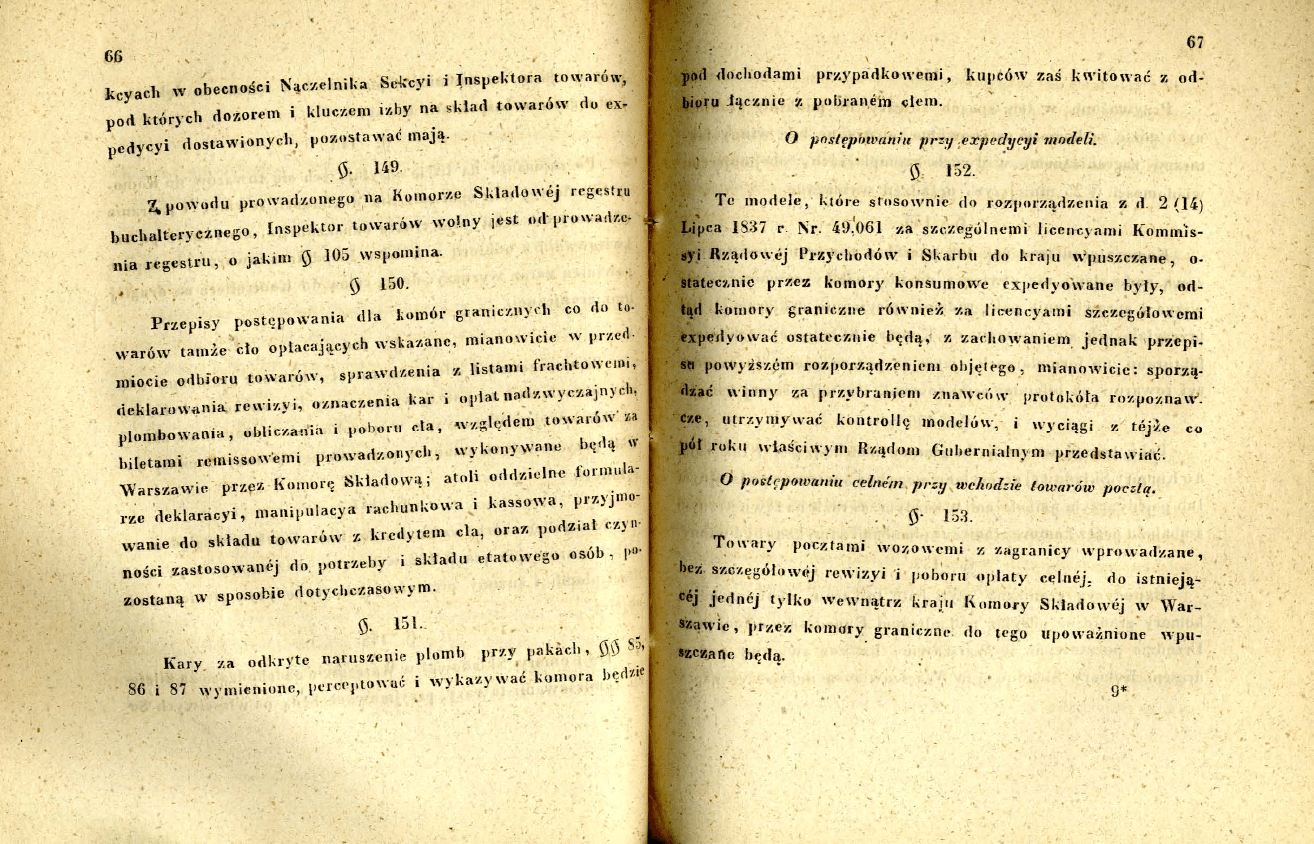 66
kcyach w obecności Naczelnika Sekcyi i Inspektora towarów,
pod których dozorem i kluczem izby na skład towarów do ex-
pedycyi dostawionych, pozostawać mają.
§. 149.
Z powodu prowadzonego na Komorze Składowéj regestru
buchalterycznego, Inspektor towarów wolny jest od prowadze-
nia regestru, o jakim § 105 wspomina.
§ 150.
Przepisy postępowania dla komór granicznych co do to-
warów tamże cło opłacających wskazane, mianowicie w przed-
miocie odbioru towarów, sprawdzenia z listami frachtowemi,
deklarowania rewizyi, oznaczenia kar i opłat nadzwyczajnych,
plombowania, obliczania i poboru cła, względem towarów za
biletami remissowemi prowadzonych, wykonywane będą w
Warszawie przez Komorę Składową; atoli oddzielne formula-
rze deklaracyi, manipulacya rachunkowa i kassowa, przyjmo-
wanie do składu towarów z kredytem cła, oraz podział czyn-
ności zastosowanéj do potrzeby i składu etatowego osób, po-
zostaną w sposobie dotychczasowym.
§. 151.
Kary za odkryte naruszenie plomb przy pakach, §§ 85,
86 i 87 wymienione, perceptować i wykazywać komora będzie
67
pod dochodami przypadkowemi, kupców zaś kwitować z od-
bioru łącznie z pobraném cłem.
O postępowaniu przy expedycyi modeli.
§. 152.
Te modele, które stosownie do rozporządzenia z d. 2 (14)
Lipca 1837 r. Nr. 49,061 za szczególnemi licencyami Kommis-
syi Rządowéj Przychodów i Skarbu do kraju wpuszczane, o-
statecznie przez komory konsumowe expedyowane były, od-
tąd komory graniczne również za licencyami szczegółowemi
expedyować ostatecznie będą, z zachowaniem jednak przepi-
su powyższém rozporządzeniem objętego, mianowicie: sporzą-
dzać winny za przybraniem znawców protokóła rozpoznaw-
cze, utrzymywać kontrollę modelów, i wyciągi z téjże co
pół roku właściwym Rządom Gubernialnym przedstawiać.
O postępowaniu celném przy wchodzie towarów pocztą.
§. 153.
Towary pocztami wozowemi z zagranicy wprowadzane,
bez szczegółowéj rewizyi i poboru opłaty celnéj, do istnieją-
céj jednéj tylko wewnątrz kraju Komory Składowéj w War-
szawie, przez komory graniczne do tego upoważnione wpu-
szczane będą.
9*